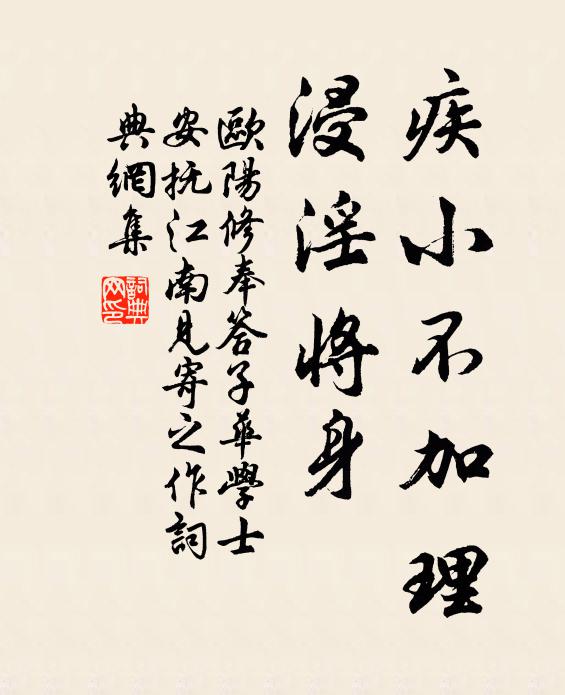 疾小不加理
浸淫将身
歐陽修奉答子華學士
安抚江南見寄之作詞
典網集
詞典网印